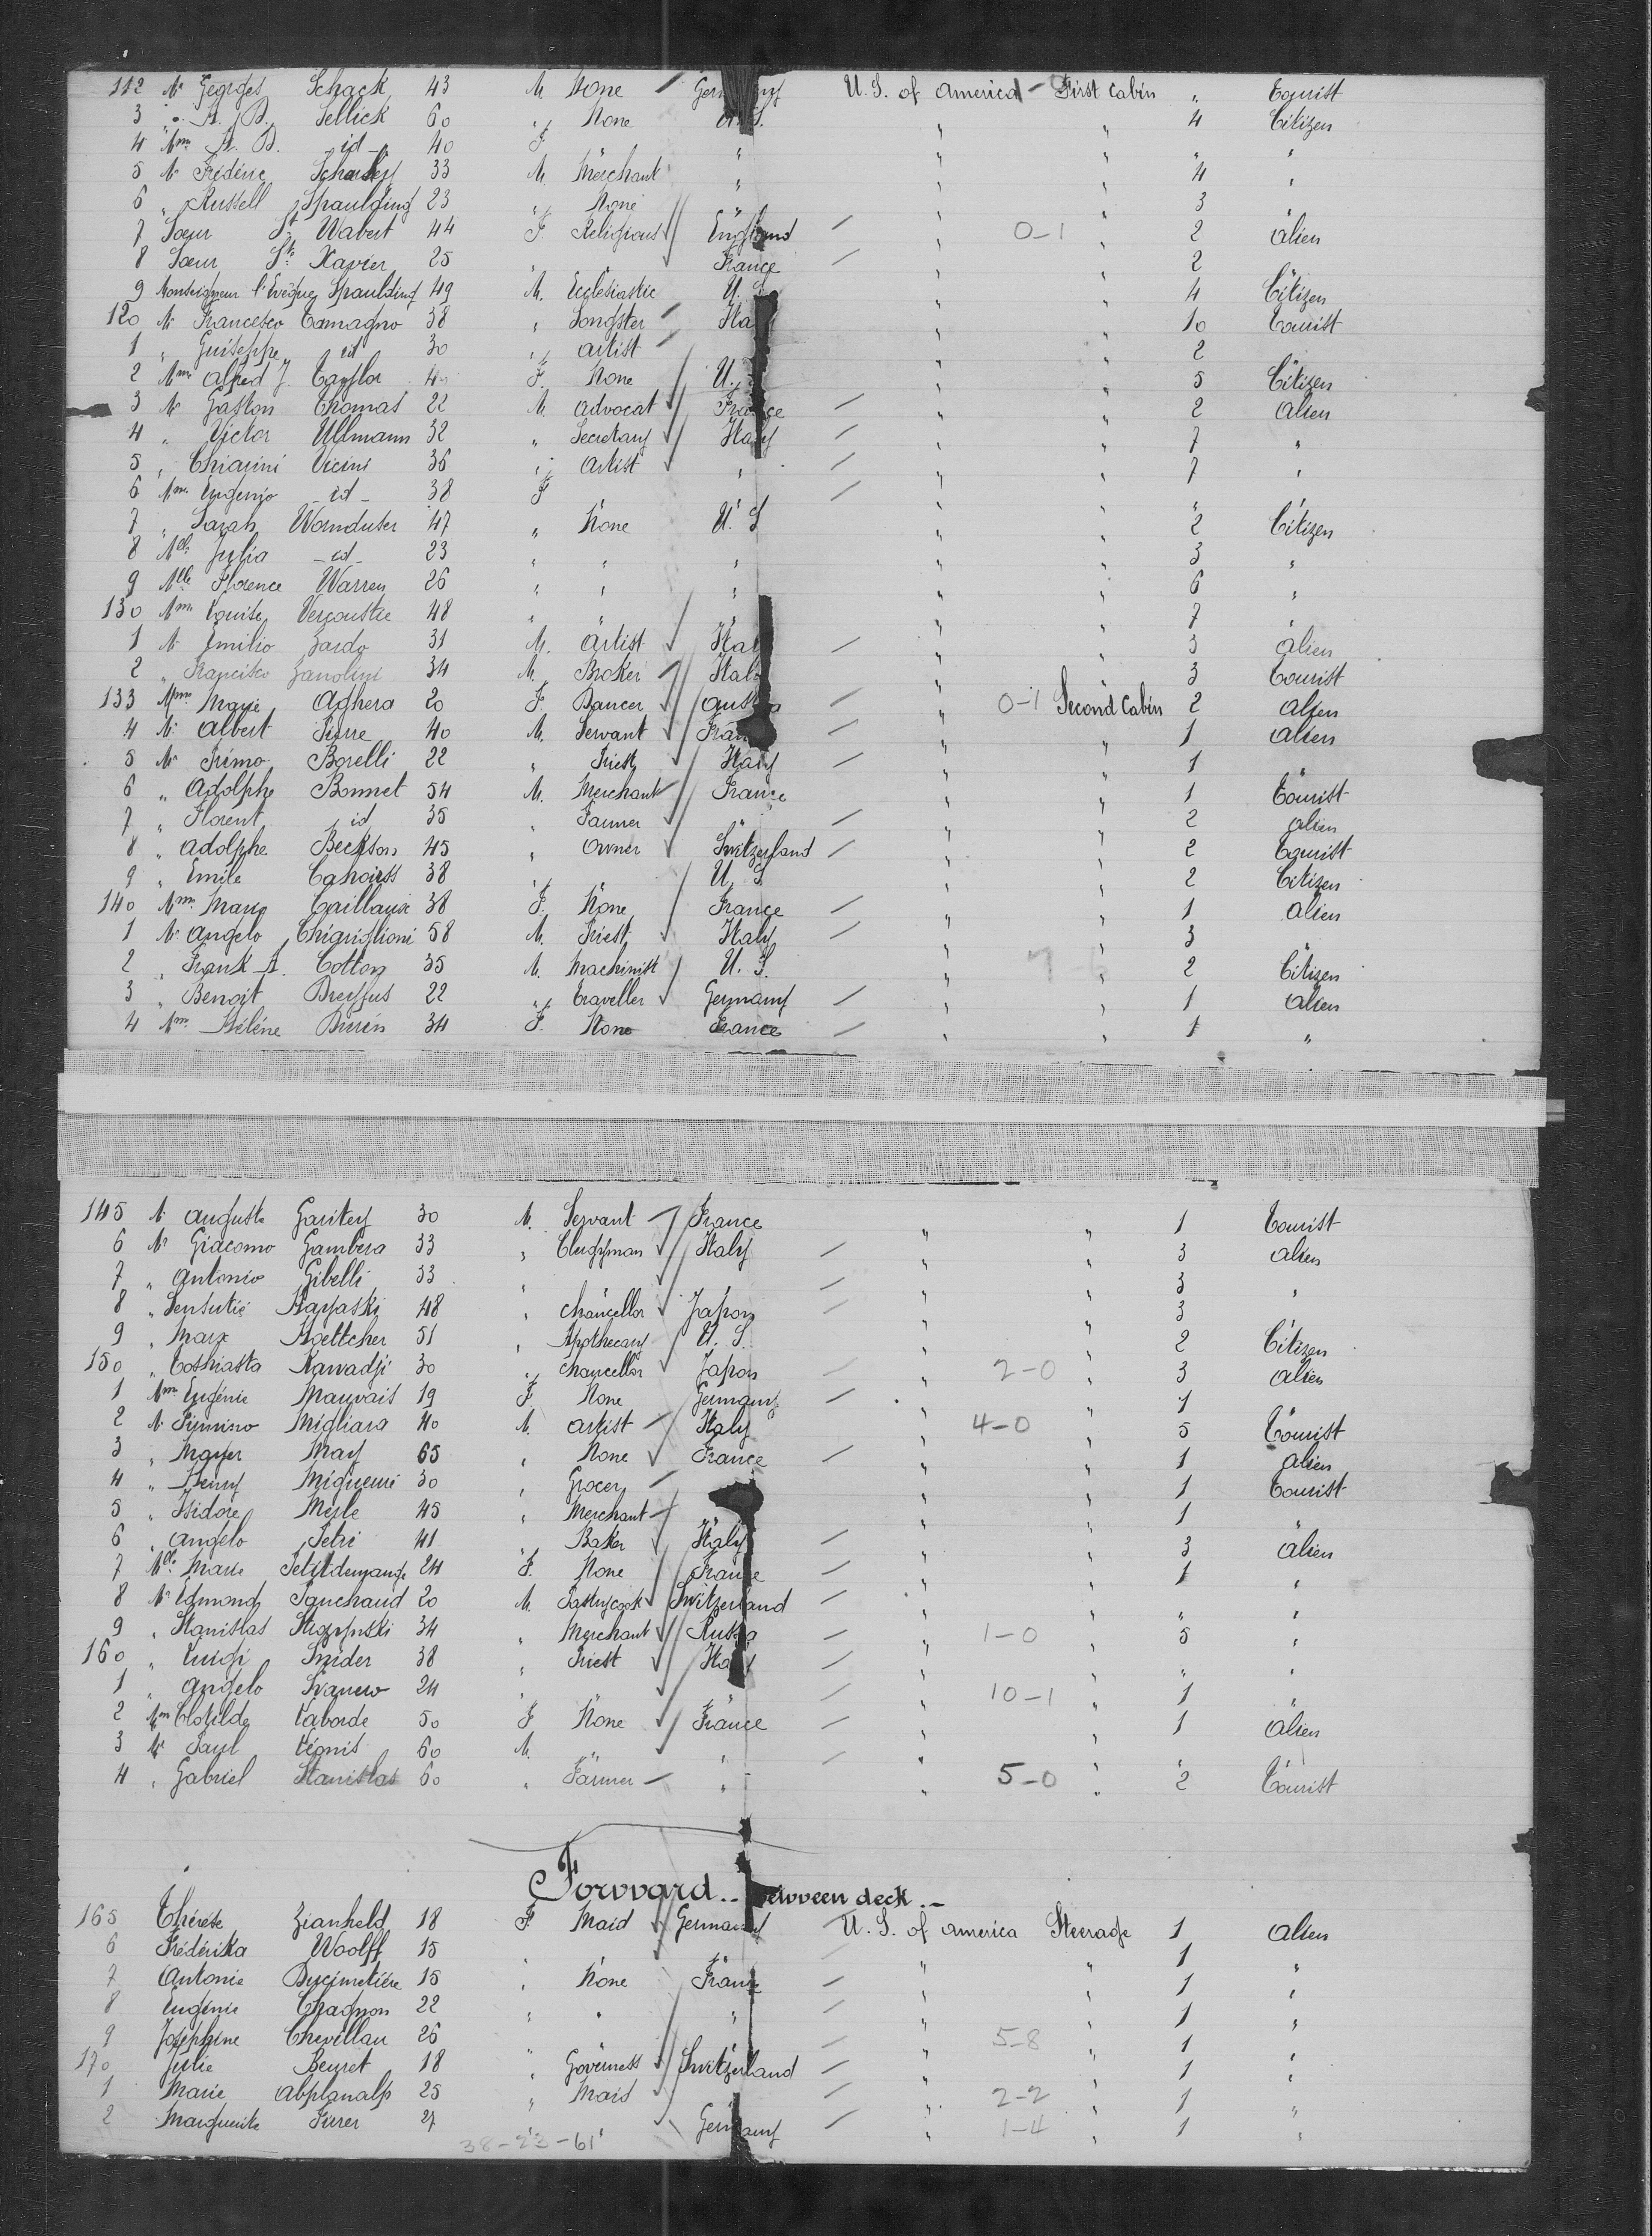 112 Mr Georges Schack 43 M None Germany U.S. of America First Cabin " Tourist
3 " A. B. Sellick 60 " None U.S. " " 4 Citizen
4 Mme A. B. id 40 F " " " " "
5 Mr Frédéric 33 M. Merchant " " " 4 "
6 " Russell Spaulding 23 " None " " " 3 "
7 Soeur St Wabert 44 F. Religious England " 0-1 " 2 Alien
8 Soeur St Xavier 25 " France " " 2
9 Monseigneur l'Evêque Spaulding 49 M. Ecclesiastic U.S. " " 4 Citizen
120 Mr Francesco Tamagno 38 " Songster Italy " " 10 Tourist
1 " Guiseppe id 30 " Artist " " " 2
2 Mme Alfred J. Taylor F. None U. " " 5 Citizen
3 Mr Gaston Thomas 22 M. Advocat France " " 2 Alien
4 " Victor Ullmann 32 " Secretary Italy " " 7 "
5 " Chiarini Vicini 36 " Artist " " " 7 "
6 Mme Eugenio id 38 F " " " "
7 " Sarah Wornduser 47 " None U.S " " 2 Citizen
8 Mlle Julia id 23 " " " " " 3 "
9 Mlle Florence Warren 26 " " " " " 6 "
130 Mme Louise Vercoustre 48 " " " " " 7 "
1 Mr Emilio Zardo 31 M. Artist Italy " " 3 Alien
2 " Francisco Zanolini 34 M. Broker Italy " " 3 Tourist
133 Mme Marie Aghera 20 F. Dancer Austria " 0-1 Second Cabin 2 Alien
4 Mr Albert Pierre 40 M. Servant France " " 1 Alien
5 Mr Primo Borelli 22 " Priest Italy " " 1 "
6 " Adolphe Bonnet 54 M. Merchant France " " 1 Tourist
7 " Florent id 35 " Farmer " " " 2 Alien
8 " Adolphe Beckson 45 " Owner Switzerland " " 2 Tourist
9 " Emile Cahouss 38 " " U.S. " " 2 Citizen
140 Mme Marie Caillaux 38 F. None France " " 1 Alien
1 Mr Angelo Chiariglioni 58 M. Priest Italy " " 3
2 " Frank A. Cotton 35 M. Machinist U.S. " " 2 Citizen
3 " Benoit Dreyfus 22 " Traveller Germany " " 1 Alien
4 Mme Hélène 34 F. None France " " 1 "
145 Mr Auguste Garitey 30 M. Servant France " " 1 Tourist
6 Mr Giacomo Gambera 33 " Clergyman Italy " " 3 Alien
7 " Antonio Gibelli 33 " " " " 3 "
8 " 48 " Chancellor Japon " " 3
9 " Marx Hoettcher 51 " Apothecary U.S. " " 2 Citizen
150 " Toshiasta Kawadji 30 " Chancellor Japon " 2-0 " 3 Alien
1 Mme Eugénie Mauvais 19 F None Germany " " 1 "
2 Mr Firmino Migliara 40 M. Artist Italy " 4-0 " 5 Tourist
3 " Mayer May 65 " None France " " 1 Alien
4 " Henry 30 " Grocer " " 1 Tourist
5 " Isidore Merle 45 " Merchant " " 1 "
6 " Angelo Petri 41 " Baker Italy " " 3 Alien
7 Mlle Marie Petitdemange 24 F. None France " " 1 "
8 Mr Edmond Panchaud 20 M. Pastrycook Switzerland " " " "
9 " Stanislas 34 " Merchant Russia " 1-0 " 5 "
160 " Luigi Snider 38 " Priest Italy " " " "
1 " Angelo 24 " " " 10-1 " 1 "
2 Mme Clotilde Laborde 50 F None France " " 1 Alien
3 Mr Paul Léonis 60 M. " " " " " "
4 " Gabriel Stanislas 60 " Farmer " " 5-0 " 2 Tourist
Forward.. Between deck.-
165 Thérèse Zianheld 18 F Maid Germany U.S. of America Steerage 1 Alien
6 Frédérika Woolff 15 " " " " " 1 "
7 Antonie Ducimetière 15 " None France " " 1 "
8 Eugénie Chagnon 22 " " " " " 1 "
9 Joséphine Chevillau 26 " " " " 5-8 " 1 "
170 Julie Beuret 18 " Governess Switzerland " " 1 "
1 Marie Abplanalp 25 " Maid " " 2-2 " 1 "
2 Marguerite Pirrer 27 " " Germany " 1-4 " 1 "
38-23-61